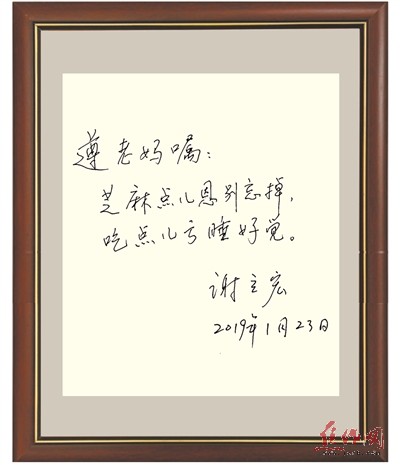 遵老妈嘱：
芝麻点儿恩别忘掉，
吃点儿亏睡好觉。
谢立宏
2019年1月23日
焦作网